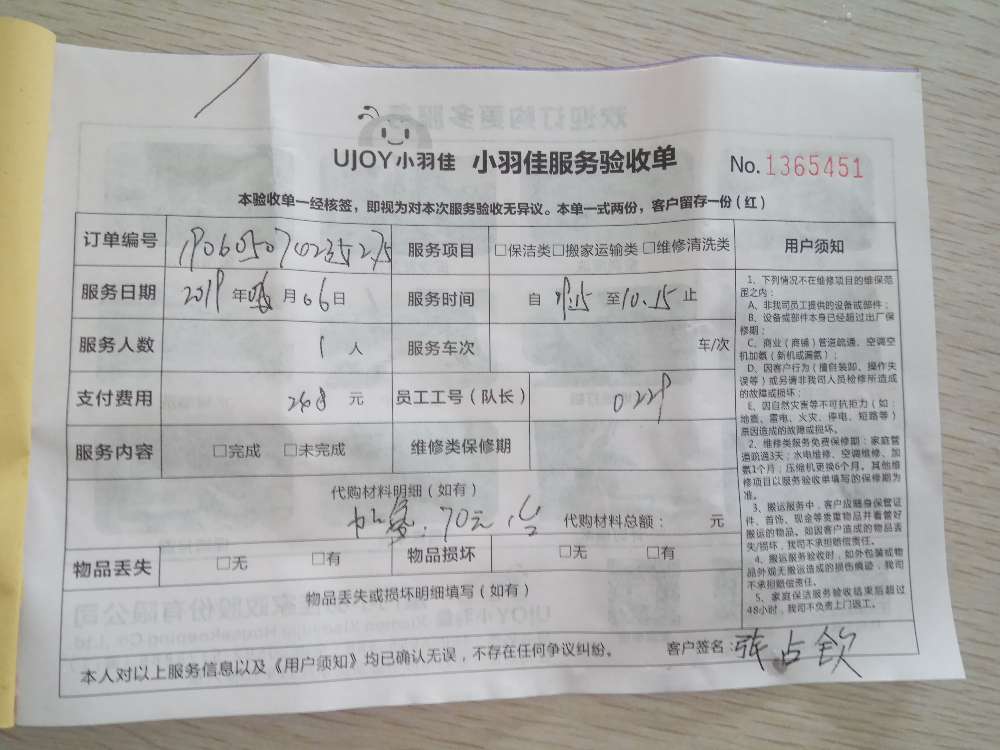 UJOY小羽佳 小羽佳服务验收单 No.1365451
本验收单一经核签，即视为对本次服务验收无异议。本单一式两份，客户留存一份（红）
订单编号 服务项目 □保洁类□搬家运输类□维修清洗类 用户须知
服务日期 2019年 月06日 服务时间 自9:15至10.15止
服务人数 1人 服务车次 车/次
支付费用 268元 员工工号（队长） 0229
服务内容 □完成 □未完成 维修类保修期
代购材料明细（如有）
加氨：70元 代购材料总额： 元
物品丢失 □无 □有 物品损坏 □无 □有
物品丢失或损坏明细填写（如有）
本人对以上服务信息以及《用户须知》均已确认无误，不存在任何争议纠纷。 客户签名：张占钦
1、下列情况不在维修项目的维保范
围之内：
A、非我司员工提供的设备或部件；
B、设备或部件本身已经超过出厂保
修期；
C、商业（商铺）管道疏通、空调空
机加氨（新机或漏氨）；
D、因客户行为（擅自装卸、操作失
误等）或另请非我司人员检修所造成
的故障或损坏；
E、因自然灾害等不可抗拒力（如：
地震、雷电、火灾、停电、短路等）
原因造成的故障或损坏。
2、维修类服务免费保修期：家庭管
道疏通3天；水电维修、空调维修、加
氨1个月；压缩机更换6个月。其他维
修项目以服务验收单填写的保修期为
准。
3、搬运服务中，客户应随身保管证
件、首饰、现金等贵重物品并看管好
搬运的物品。如因客户造成的物品丢
失/损坏，我司不承担赔偿责任。
4、搬运服务验收时，如外包装或物
品外观无搬运造成的损伤痕迹，我司
不承担赔偿责任。
5、家庭保洁服务验收结束后超过
48小时，我司不负责上门返工。